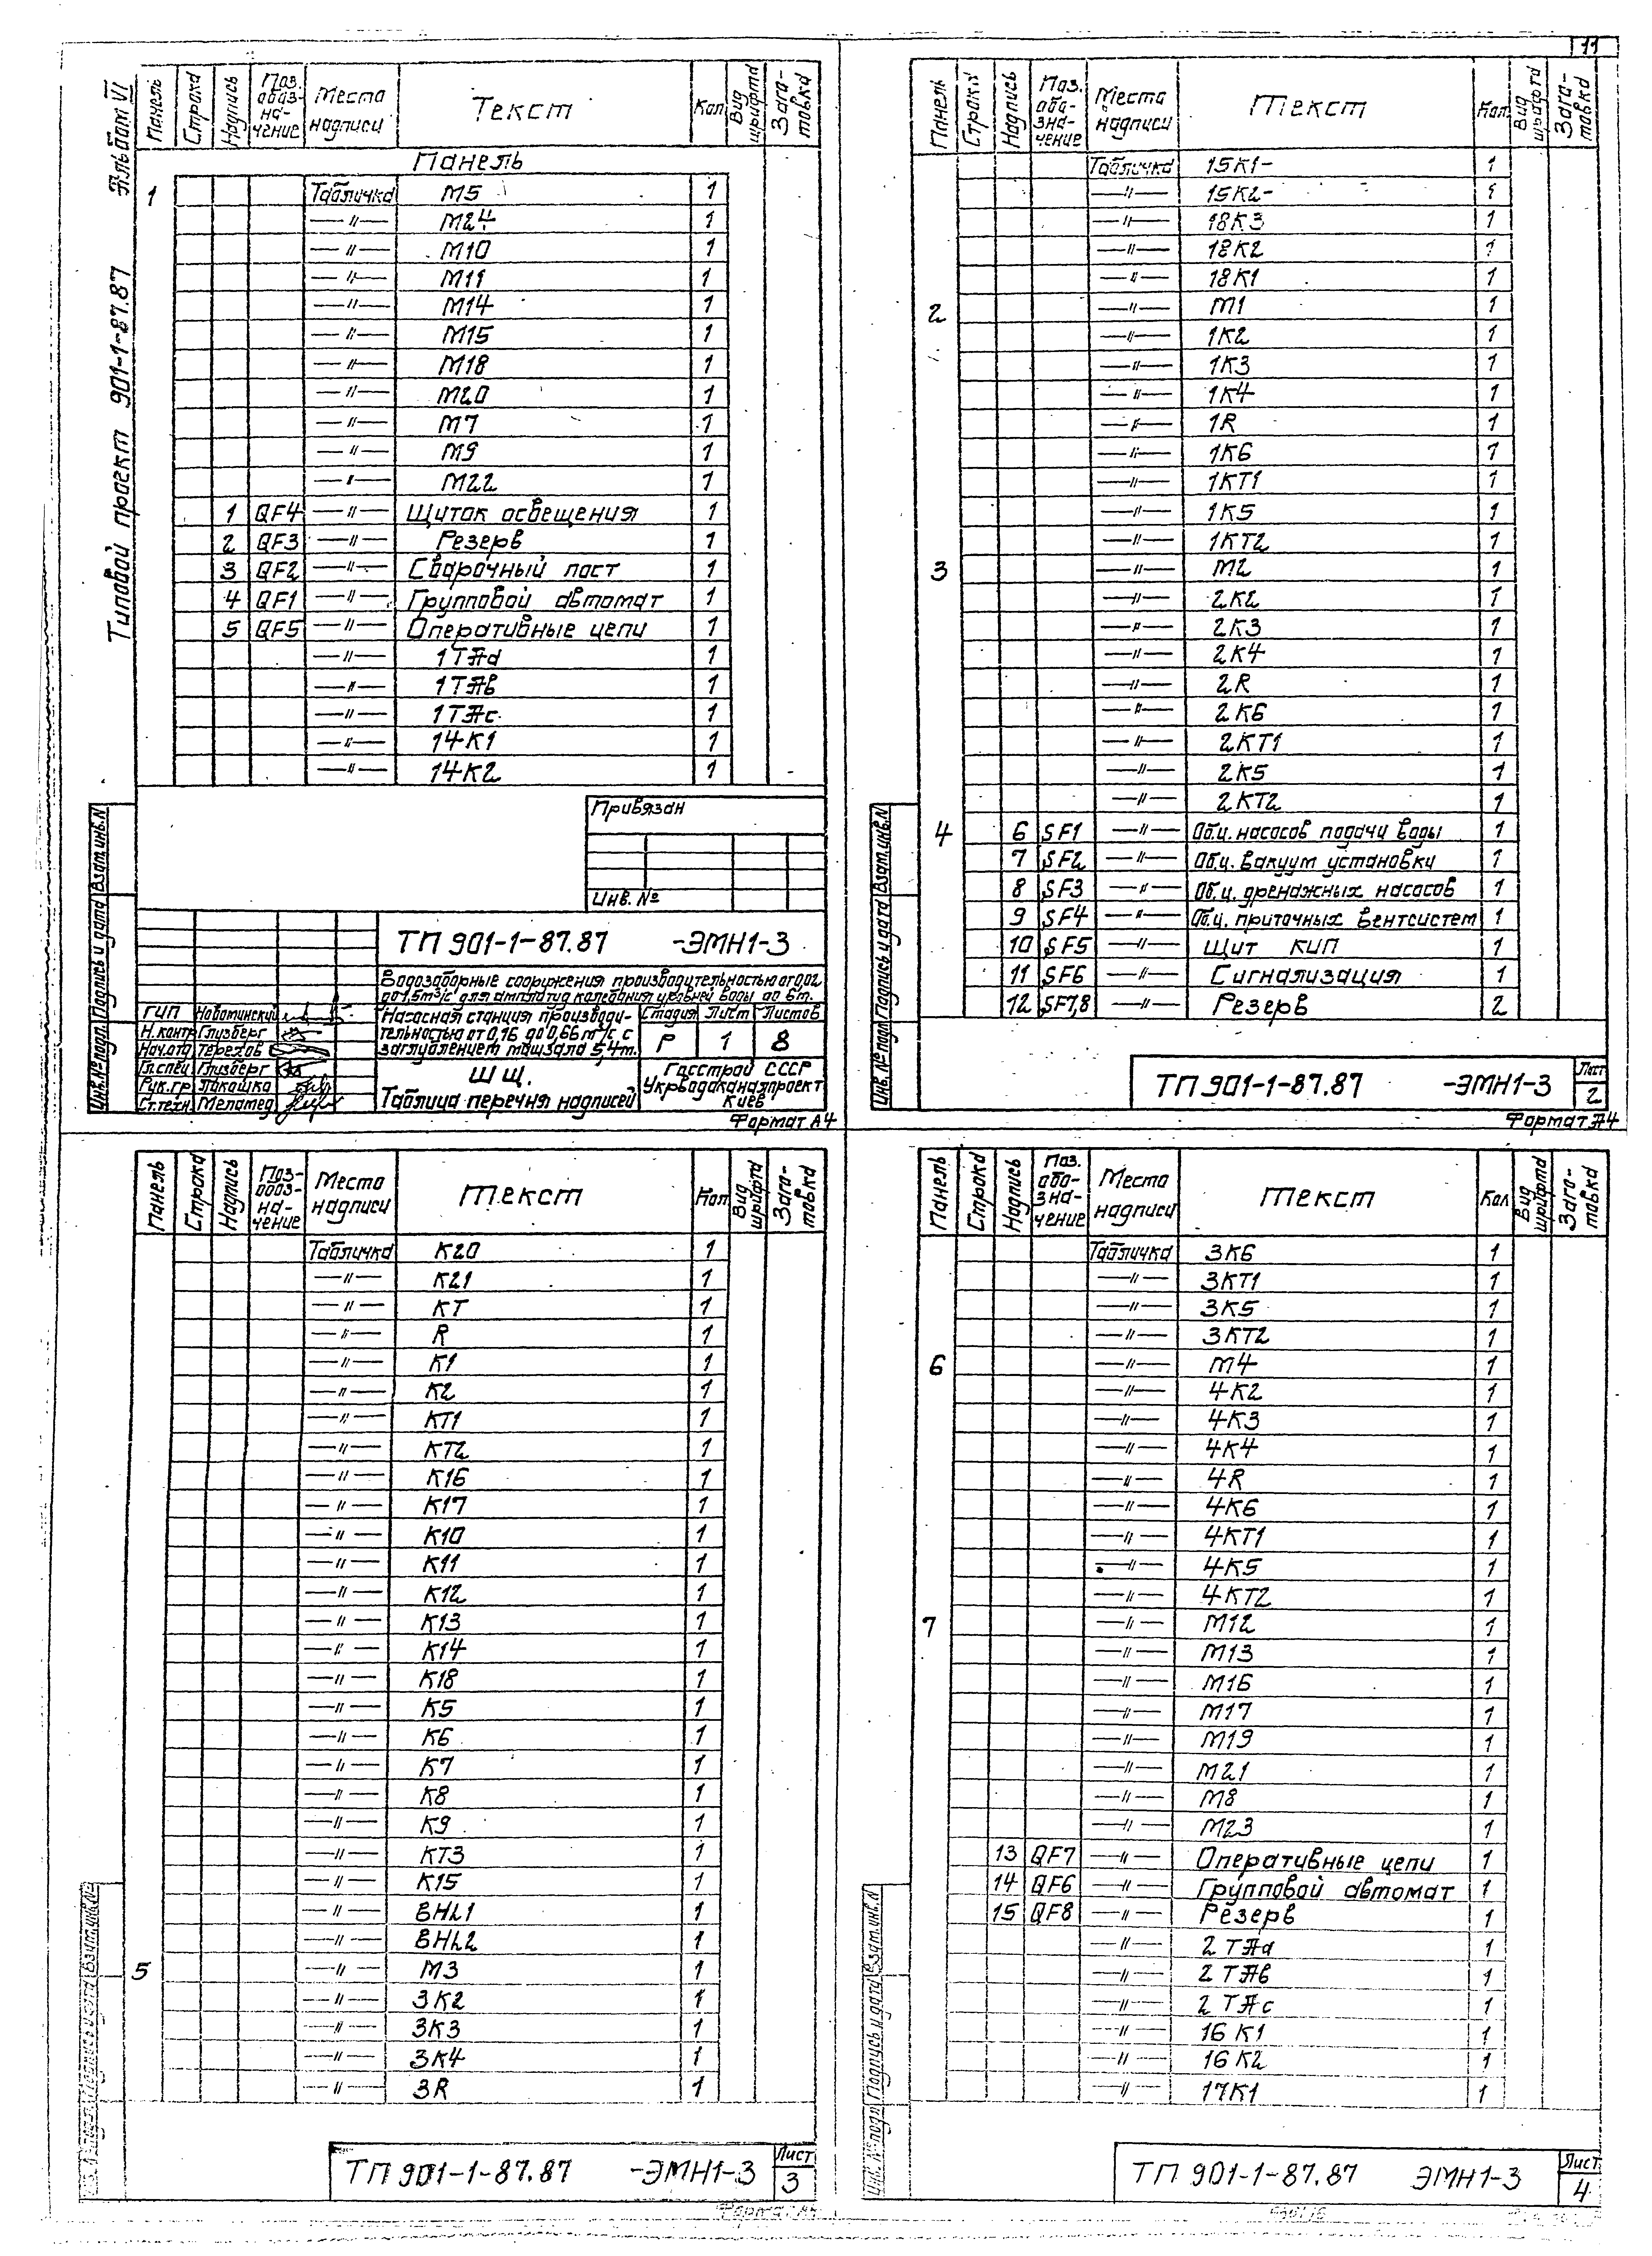 11
Альбом VI
Типовой проект 901-1-87.87
Панель Строка Надпись Поз. обоз-на-чение Место надписи Текст Кол Вид шрифта Заго-товка
Панель
1 Табличка М5 1
—"— М24 1
—"— М10 1
—"— М11 1
—"— М14 1
—"— М15 1
—"— М18 1
—"— М20 1
—"— М7 1
—"— М9 1
—"— М22 1
1 QF4 —"— Щиток освещения 1
2 QF3 —"— Резерв 1
3 QF2 —"— Сварочный пост 1
4 QF1 —"— Групповой автомат 1
5 QF5 —"— Оперативные цепи 1
—"— 1ТАа 1
—"— 1ТАв 1
—"— 1ТАс 1
—"— 14К1 1
—"— 14К2 1
Привязан
Инв. №
ТП 901-1-87.87 -ЭМН1-3
Водозаборные сооружения производительностью от 0,02
до 1,5м³/с для амплитуд колебания уровней воды до 6м.
Насосная станция производи-
тельностью от 0,16 до 0,66 м³/с с
заглублением машзала 5,4м.
Стадия Лист Листов
Р 1 8
ГИП Новоминский
Н.контр Глузберг
Нач.отд Терехов
Гл.спец Глузберг
Рук.гр. Пикашка
Ст.техн. Меламед
ШЩ.
Таблица перечня надписей
Госстрой СССР
Укрводоканалпроект
Киев
Инв.№ подл. Подпись и дата Взам.инв.N
Формат А4
Панель Строка Надпись Поз. обо-зна-чение Место надписи Текст Кол Вид шрифта Заго-товка
Табличка 15К1- 1
—"— 15К2- 1
—"— 18К3 1
—"— 18К2 1
—"— 18К1 1
2 —"— М1 1
—"— 1К2 1
—"— 1К3 1
—"— 1К4 1
—"— 1R 1
—"— 1К6 1
—"— 1КТ1 1
—"— 1К5 1
—"— 1КТ2 1
3 —"— М2 1
—"— 2К2 1
—"— 2К3 1
—"— 2К4 1
—"— 2R 1
—"— 2К6 1
—"— 2КТ1 1
—"— 2К5 1
—"— 2КТ2 1
4 6 SF1 —"— Об.ц. насосов подачи воды 1
7 SF2 —"— Об.ц. вакуум установки 1
8 SF3 —"— Об.ц. дренажных насосов 1
9 SF4 —"— Об.ц. приточных вентсистем 1
10 SF5 —"— Щит КИП 1
11 SF6 —"— Сигнализация 1
12 SF7,8 —"— Резерв 2
Инв.№ подл Подпись и дата Взам.инв.N
ТП 901-1-87.87 -ЭМН1-3 Лист 2
Формат А4
Панель Строка Надпись Поз-обоз-на-чение Место надписи Текст Кол Вид шрифта Заго-товка
Табличка К20 1
—"— К21 1
—"— КТ 1
—"— R 1
—"— К1 1
—"— К2 1
—"— КТ1 1
—"— КТ2 1
—"— К16 1
—"— К17 1
—"— К10 1
—"— К11 1
—"— К12 1
—"— К13 1
—"— К14 1
—"— К18 1
—"— К5 1
—"— К6 1
—"— К7 1
—"— К8 1
—"— К9 1
—"— КТ3 1
—"— К15 1
—"— ВНL1 1
—"— ВНL2 1
5 —"— М3 1
—"— 3К2 1
—"— 3К3 1
—"— 3К4 1
—"— 3R 1
Подпись и дата Взам.инв.№
ТП 901-1-87.87 -ЭМН1-3 Лист 3
Формат А4
Панель Строка Надпись Поз. обо-зна-чение Место надписи Текст Кол Вид шрифта Заго-товка
Табличка 3К6 1
—"— 3КТ1 1
—"— 3К5 1
—"— 3КТ2 1
6 —"— М4 1
—"— 4К2 1
—"— 4К3 1
—"— 4К4 1
—"— 4R 1
—"— 4К6 1
—"— 4КТ1 1
—"— 4К5 1
—"— 4КТ2 1
7 —"— М12 1
—"— М13 1
—"— М16 1
—"— М17 1
—"— М19 1
—"— М21 1
—"— М8 1
—"— М23 1
13 QF7 —"— Оперативные цепи 1
14 QF6 —"— Групповой автомат 1
15 QF8 —"— Резерв 1
—"— 2 ТАа 1
—"— 2 ТАв 1
—"— 2 ТАс 1
—"— 16 К1 1
—"— 16 К2 1
—"— 17К1 1
Инв. № подл Подпись и дата Взам.инв.N
ТП 901-1-87.87 ЭМН1-3 Лист 4